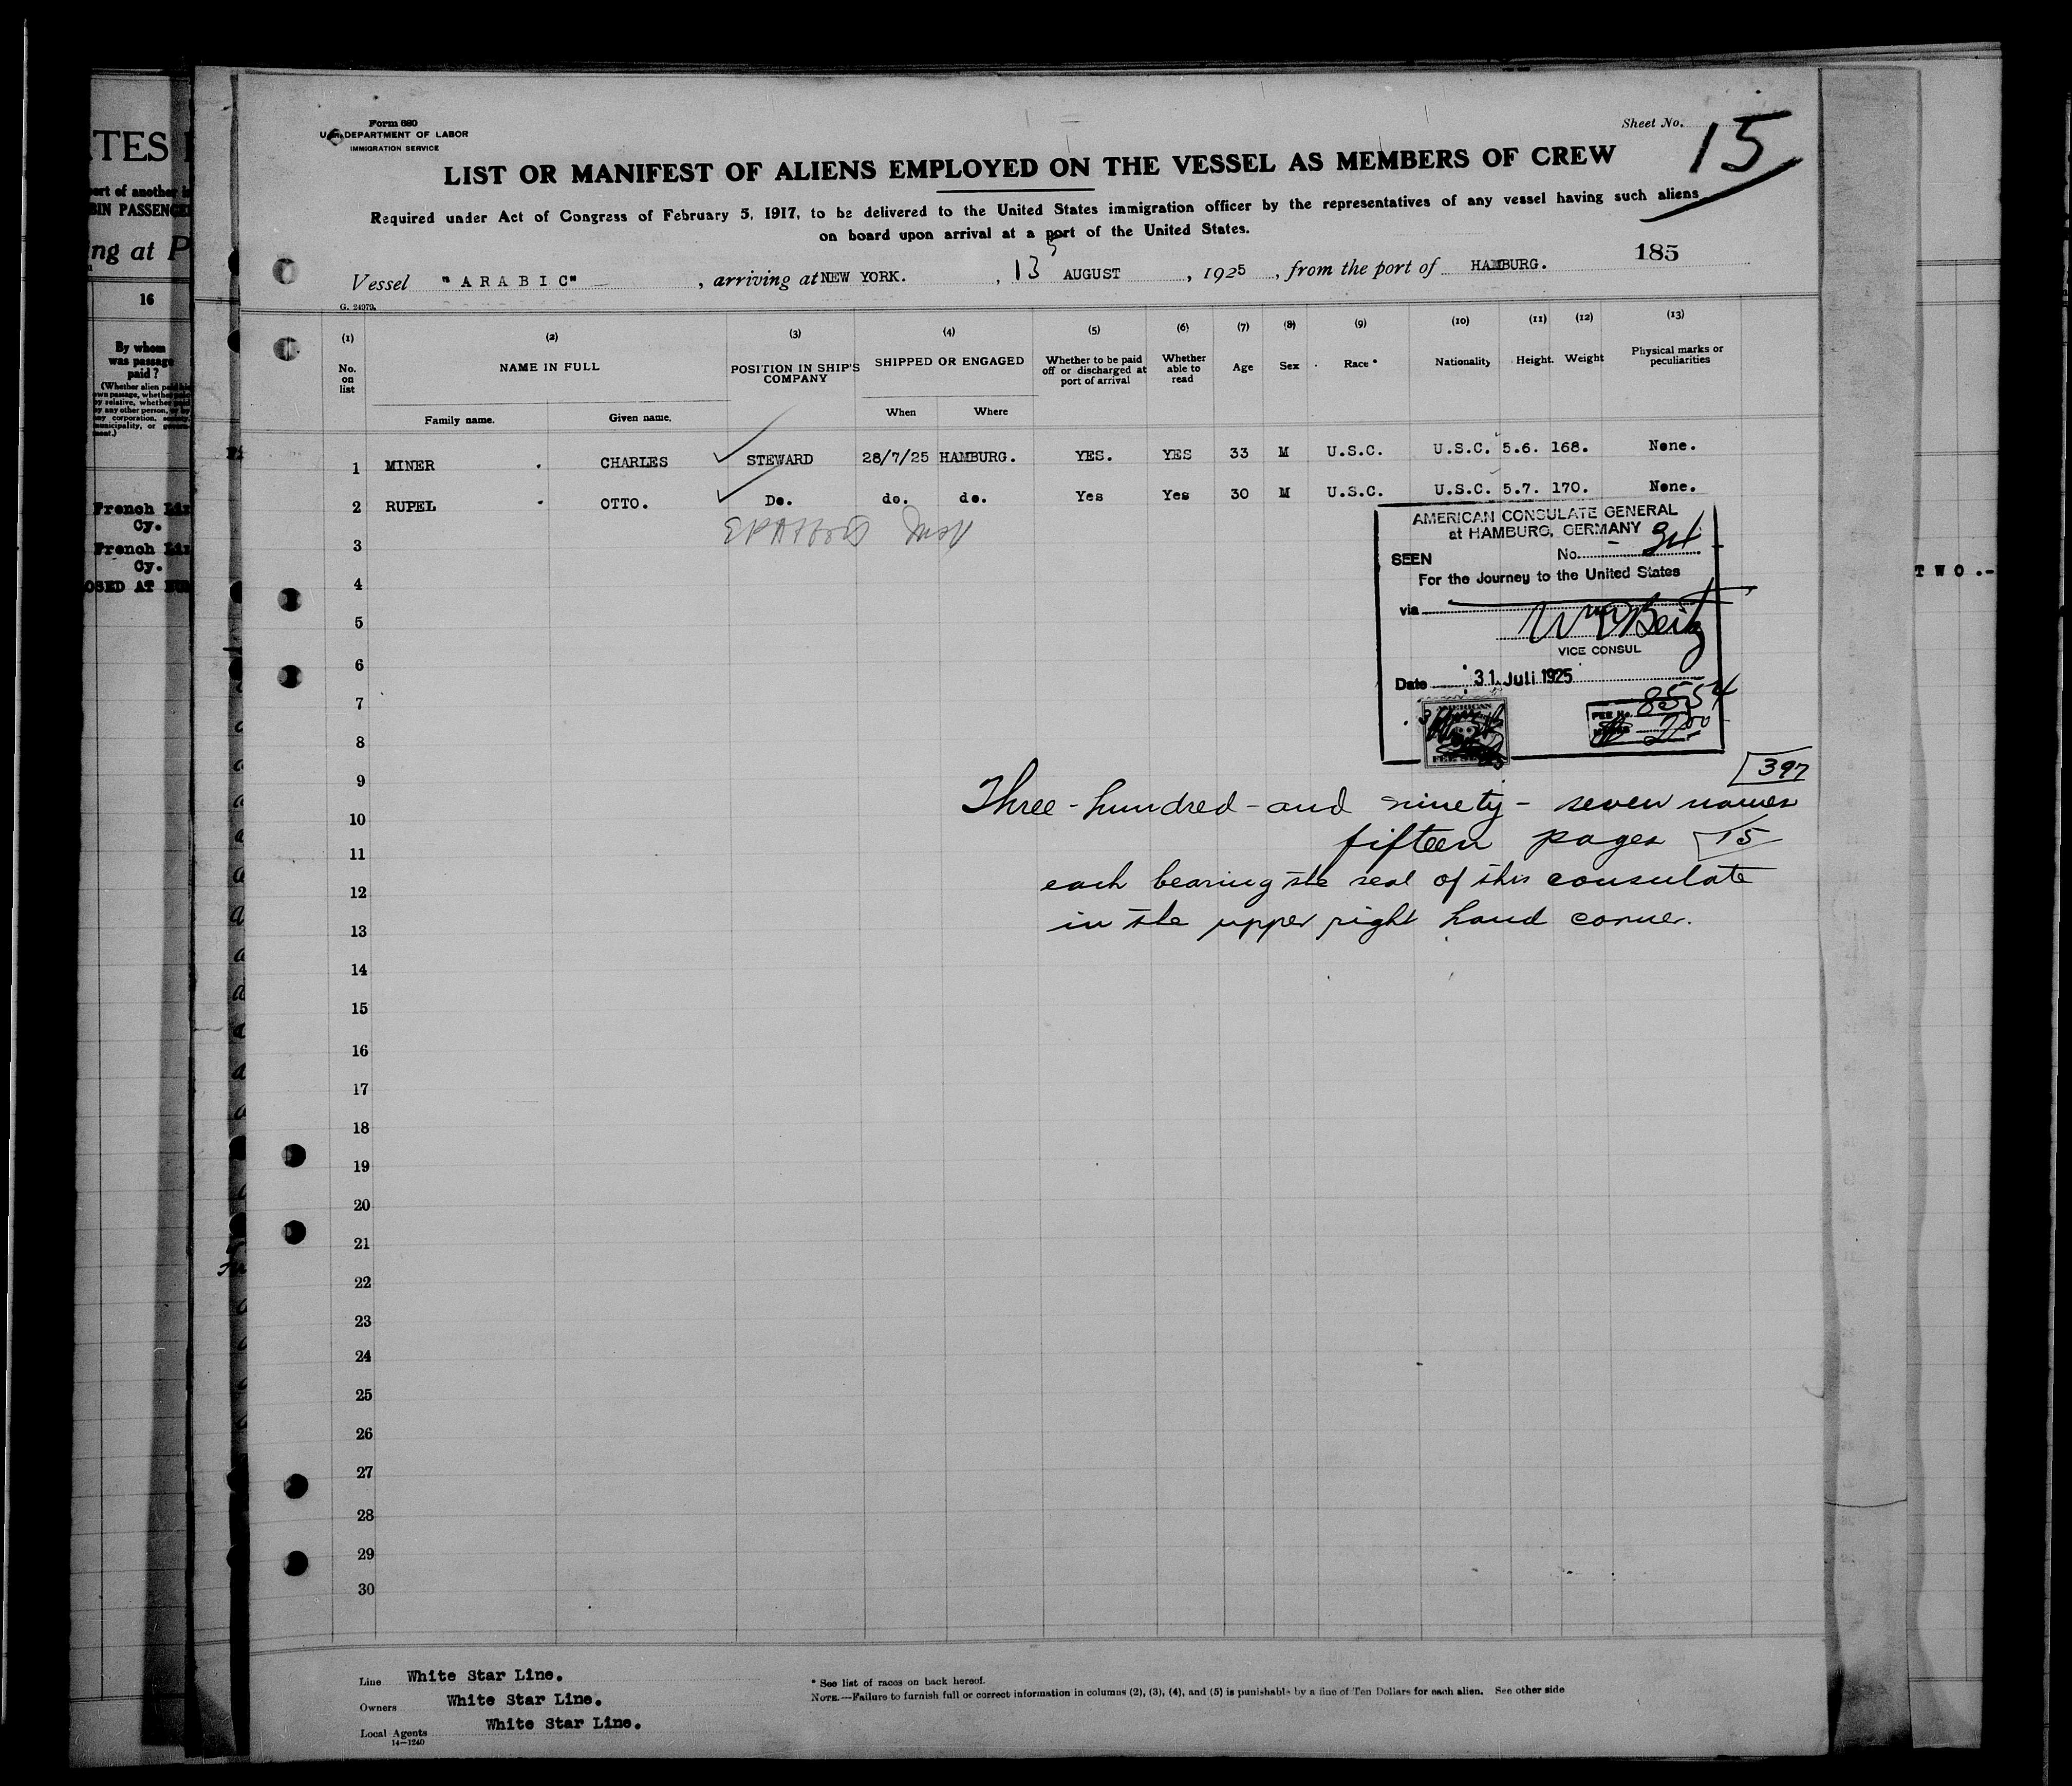 ATES
port of another
BIN PASSENGE
ing at P
16
By whom
was passage
paid ?
(Whether alien paid
own passage, whether
by relative, whether
by any other person, or by
any corporation, society,
municipality, or govern-
ment.)
French Lin
Cy.
French Lin
Cy.
OSED AT
TWO.-
Form 680
U. S. DEPARTMENT OF LABOR
IMMIGRATION SERVICE
Sheet No. 15
LIST OR MANIFEST OF ALIENS EMPLOYED ON THE VESSEL AS MEMBERS OF CREW
Required under Act of Congress of February 5, 1917, to be delivered to the United States immigration officer by the representatives of any vessel having such aliens
on board upon arrival at a port of the United States.
185
Vessel "ARABIC" , arriving at NEW YORK. , 13 AUGUST , 1925 , from the port of HAMBURG.
G. 24979.
(1) (2) (3) (4) (5) (6) (7) (8) (9) (10) (11) (12) (13)
No. on list NAME IN FULL POSITION IN SHIP'S COMPANY SHIPPED OR ENGAGED Whether to be paid off or discharged at port of arrival Whether able to read Age Sex Race * Nationality Height. Weight Physical marks or peculiarities
Family name. Given name. When Where
1 MINER CHARLES STEWARD 28/7/25 HAMBURG. YES. YES 33 M U.S.C. U.S.C. 5.6. 168. None.
2 RUPEL OTTO. Do. do. do. Yes Yes 30 M U.S.C. U.S.C. 5.7. 170. None.
3
4
5
6
7
8
9
10
11
12
13
14
15
16
17
18
19
20
21
22
23
24
25
26
27
28
29
30
AMERICAN CONSULATE GENERAL
at HAMBURG, GERMANY
SEEN No.
For the Journey to the United States
via
VICE CONSUL
Date 31. Juli 1925
AMERICAN
8554
FEE No.
2.00
397
Three-hundred-and ninety-seven names
fifteen pages 15
each bearing the seal of this consulate
in the upper right hand corner.
Line White Star Line.
Owners White Star Line.
Local Agents White Star Line.
14—1240
* See list of races on back hereof.
NOTE.—Failure to furnish full or correct information in columns (2), (3), (4), and (5) is punishable by a fine of Ten Dollars for each alien. See other side